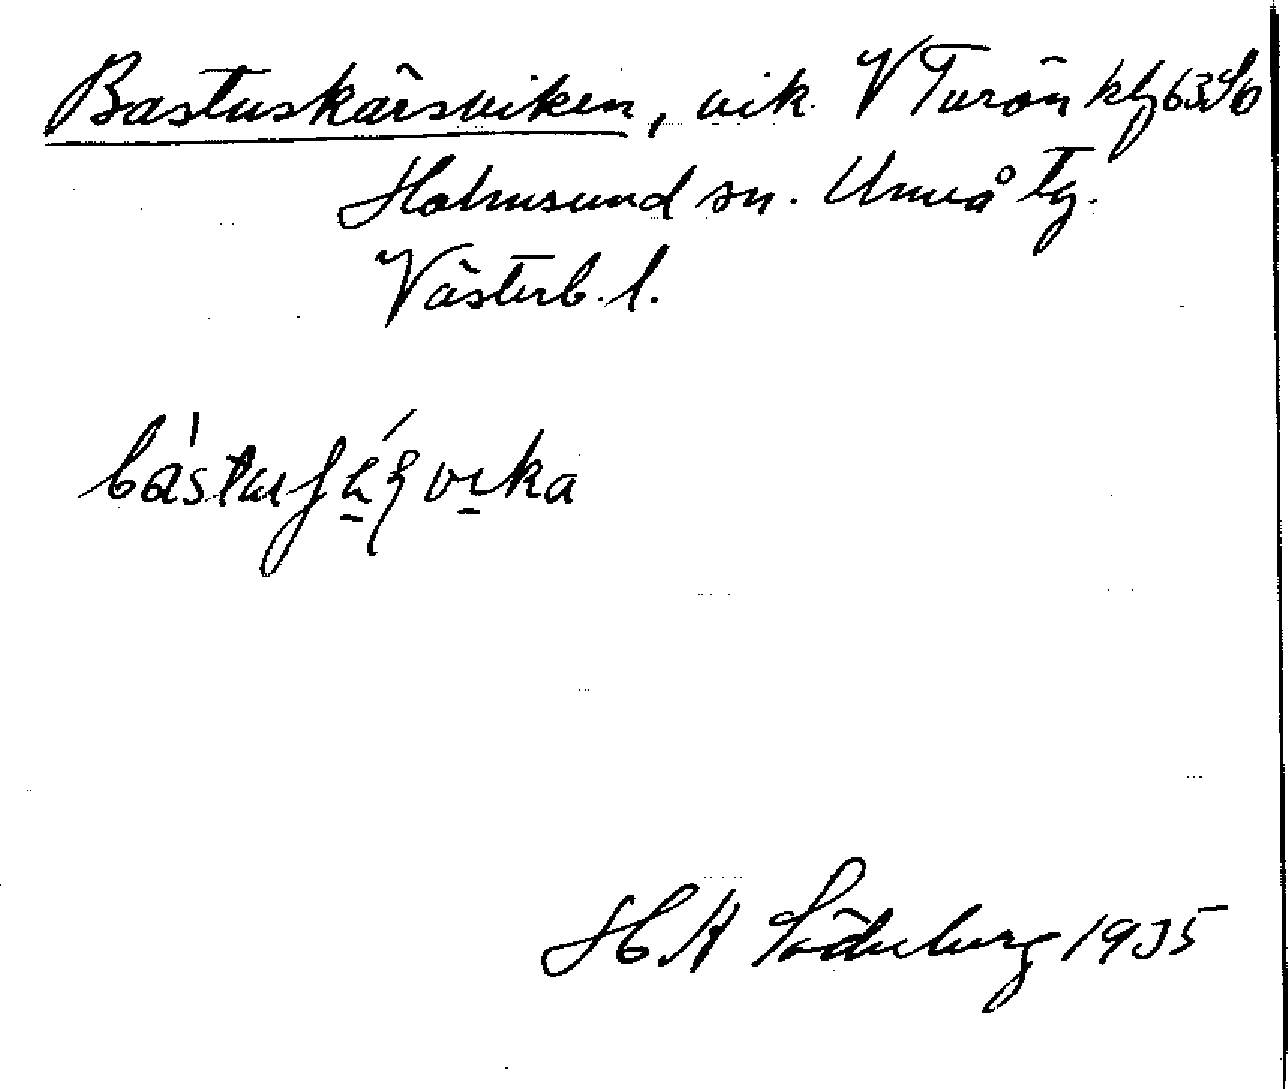 Bastuskärsviken, vik V Turön kbl 63 Sö
Holmsund sn. Umeå tg.
Västerb. l.
H A Söderberg 1935